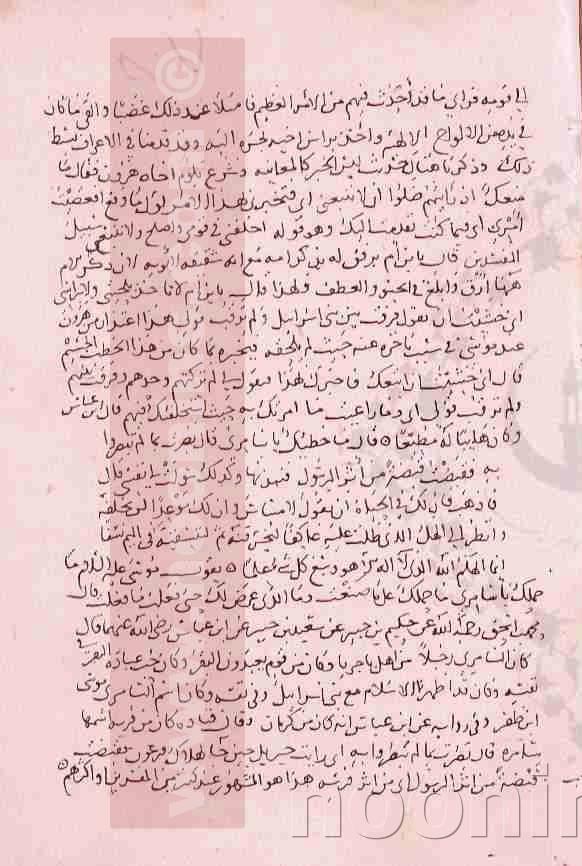 الى قومه فرأى ما قد أحدث فيهم من الامر العظيم فامتلأ عند ذلك غضبا والقى ما كان
فى يده من الالواح الالهية واخذ براس اخيه يجره اليه وقد قدمنا فى الاعراف بسط
ذلك وذكرنا هناك حديث ليس الخبر كالمعاينة وشرع يلوم اخاه هرون فقال ما
منعك اذ رايتهم ضلوا ان لا تتبعنى اى فتخبرنى بهذا الامر اول ما وقع افعصيت
امرى اى فيما كنت تقدمت اليك وهو قوله اخلفنى فى قومى واصلح ولا تتبع سبيل
المفسدين قال يا بن ام ترقق له بذكر الام مع انه شقيقه لابويه لان ذكر الام
ههنا ارق وابلغ فى الحنو والعطف ولهذا قال يا بن ام لا تاخذ بلحيتى ولا براسى
انى خشيت ان تقول فرقت بين بنى اسرائيل ولم ترقب قولى هذا اعتذار من هرون
عند موسى فى سبب تاخره عنه حيث لم يلحقه فيخبره بما كان من هذا الخطب الجسيم
قال انى خشيت ان اتبعك فاخبرك بهذا فتقول لى لم تركتهم وحدهم وفرقت بينهم
ولم ترقب قولى اى وما راعيت ما امرتك به حيث استخلفتك فيهم قال ابن عباس
وكان هارون هائبا له مطيعا قال فما خطبك يا سامرى قال بصرت بما لم يبصروا
به فقبضت قبضة من أثر الرسول فنبذتها وكذلك سولت لى نفسى قال
فاذهب فان لك فى الحياة ان تقول لا مساس وان لك موعدا لن تخلفه
وانظر الى الهك الذى ظلت عليه عاكفا لنحرقنه ثم لننسفنه فى اليم نسفا
انما الهكم الله الذى لا اله الا هو وسع كل شئ علما يقول موسى عليه السلام ما
حملك يا سامرى ما حملك على ما صنعت وما الذى عرض لك حتى فعلت ما فعلت قال
محمد بن اسحق رحمه الله عن حكيم بن جبير عن سعيد بن جبير عن ابن عباس رضى الله عنهما قال
كان السامرى رجلا من اهل باجرما وكان من قوم يعبدون البقر وكان حب عبادة البقر فى
نفسه وكان قد اظهر الاسلام مع بنى اسرائيل وكان اسم السامرى موسى
ابن ظفر وفى رواية عن ابن عباس انه كان من كرمان وقال قتادة كان من قرية اسمها
سامرة قال بصرت بما لم يبصروا به اى رايت جبريل حين جا لهلاك فرعون فقبضت
قبضة من اثر الرسول اى من اثر فرسه هذا هو المشهور عند كثير من المفسرين او اكثرهم
noorlib